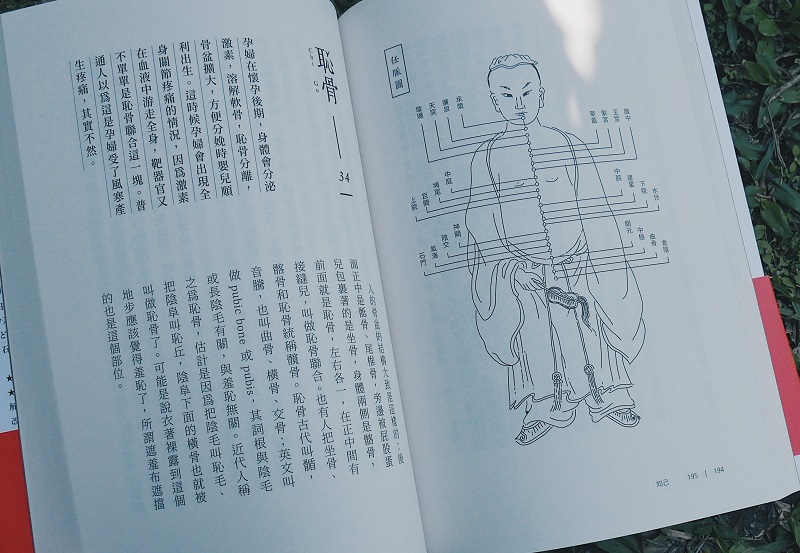 任脈圖
膻中
玉堂
紫宮
華蓋
承漿
廉泉
天突
璇璣
水分
下脘
建里
中脘
中庭
鳩尾
巨闕
上脘
會陰
曲骨
中極
關元
神闕
陰交
氣海
石門
知己 195 | 194
恥骨 34
Chi Gu
孕婦在懷孕後期，身體會分泌
激素，溶解軟骨，恥骨分離，
骨盆擴大，方便分娩時嬰兒順
利出生。這時候孕婦會出現全
身關節疼痛的情況，因為激素
在血液中游走全身，靶器官又
不單單是恥骨聯合這一塊。普
通人以為這是孕婦受了風寒產
生疼痛，其實不然。
人的骨盆的結構大致是這樣的：後
面正中是骶骨、尾椎骨，旁邊被屁股蛋
兒包裹著的是坐骨，身體兩側是髂骨，
前面就是恥骨，左右各一，在正中間有
接縫兒，叫做恥骨聯合。也有人把坐骨、
髂骨和恥骨統稱髖骨。恥骨古代叫
也叫曲骨、橫骨、交骨；英文叫
做 pubic bone 或 pubis，其詞根與陰毛
或長陰毛有關，與羞恥無關。近代人稱
之為恥骨，估計是因為把陰毛叫恥毛、
把陰阜叫恥丘，陰阜下面的橫骨也就被
叫做恥骨了。可能是說衣著裸露到這個
地步應該覺得羞恥了，所謂遮羞布遮擋
的也是這個部位。